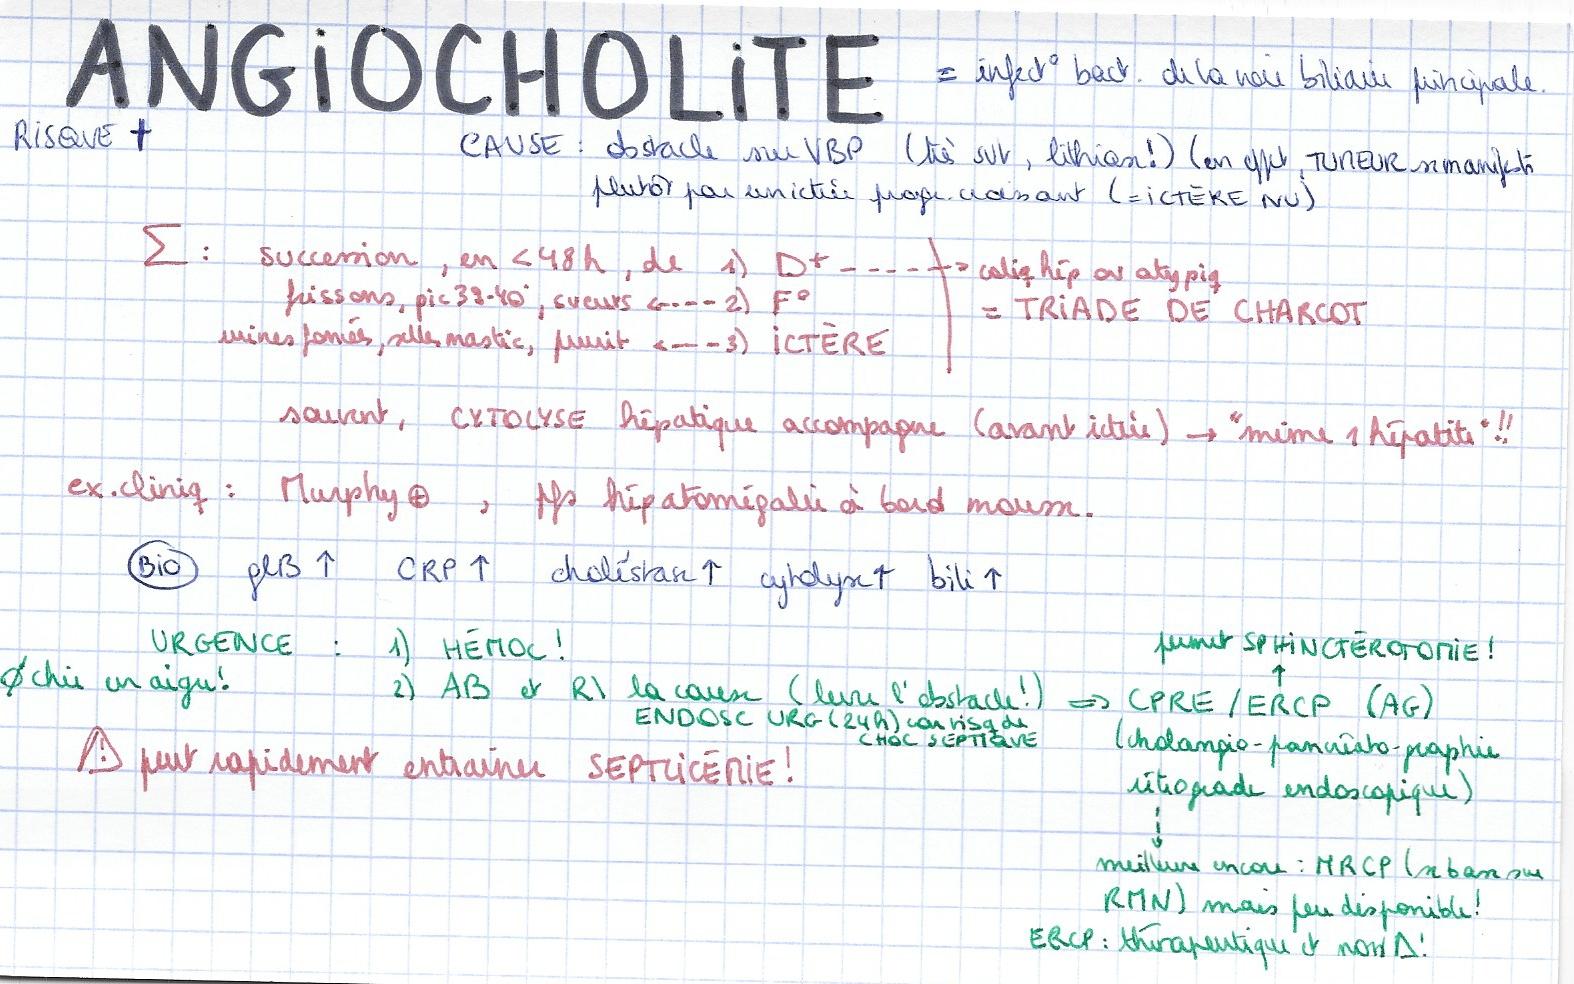 ANGIOCHOLITE = infect° bact. de la voie biliaire principale.
RISQUE † CAUSE : obstacle sur VBP (très svt, lithiase!) (en effet, TUMEUR se manifeste
plutôt par un ictère progr. croissant (= ICTÈRE NU)
Σ : succession, en < 48h, de 1) D+ ----> coliq hép ou atypiq
frissons, pic 39-40°, sueurs <---- 2) F° = TRIADE DE CHARCOT
urines foncées, selles mastic, prurit <--- 3) ICTÈRE
souvent, CYTOLYSE hépatique accompagne (avant ictère) → "mime 1 hépatite"!!
ex. cliniq : Murphy ⊕ , pfs hépatomégalie à bord mousse.
Bio glB ↑ CRP ↑ choléstase ↑ cytolyse ↑ bili ↑
URGENCE : 1) HÉMOC! permet SPHINCTÉROTOMIE!
∅ chir en aigu! 2) AB et R\ la cause (lever l'obstacle!) => CPRE / ERCP (AG)
ENDOSC URG (24h) car risq de
CHOC SEPTIQUE (cholangio-pancréato-graphie
⚠ peut rapidement entraîner SEPTICÉMIE! rétrograde endoscopique)
meilleure encore : MRCP (se base sur
RMN) mais peu disponible!
ERCP : thérapeutique et non Δ!